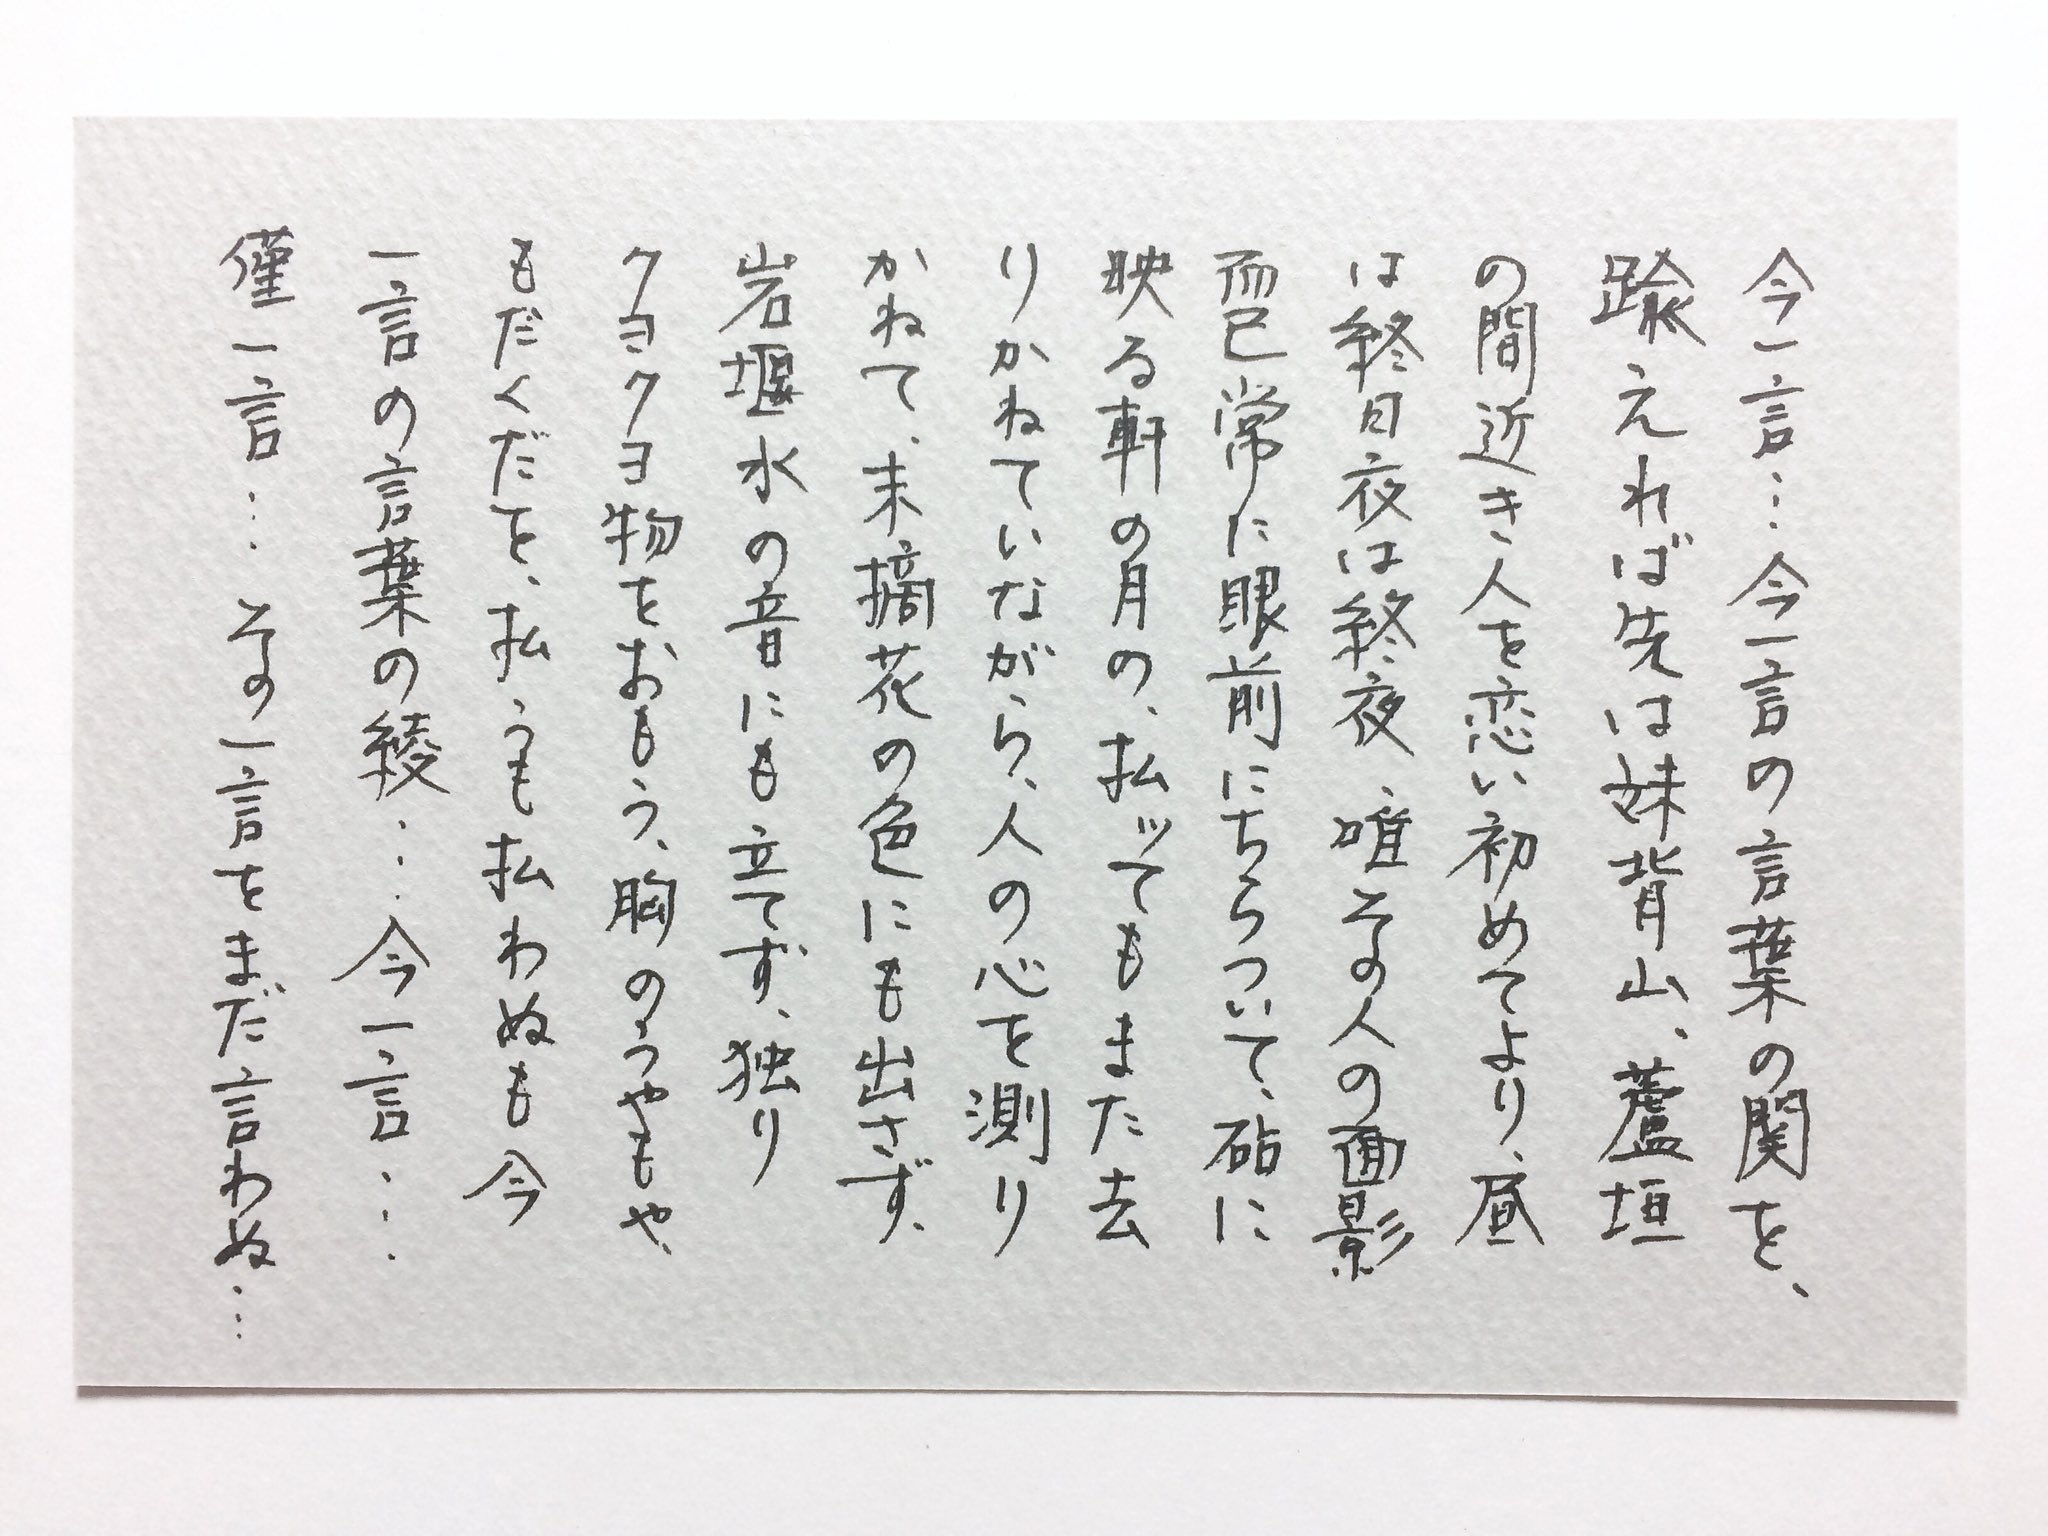 今一言…今一言の言葉の関を、
踰えれば先は妹背山、蘆垣
の間近き人を恋い初めてより、昼
は終日夜は終夜、唯その人の面影
而已常に眼前にちらついて、砧に
映る軒の月の、払ッてもまた去
りかねていながら、人の心を測り
かねて、末摘花の色にも出さず、
岩堰水の音にも立てず、独り
クヨクヨ物をおもう、胸のうやもや、
もだくだを、払うも払わぬも今
一言の言葉の綾…今一言…
僅一言…その一言をまだ言わぬ…